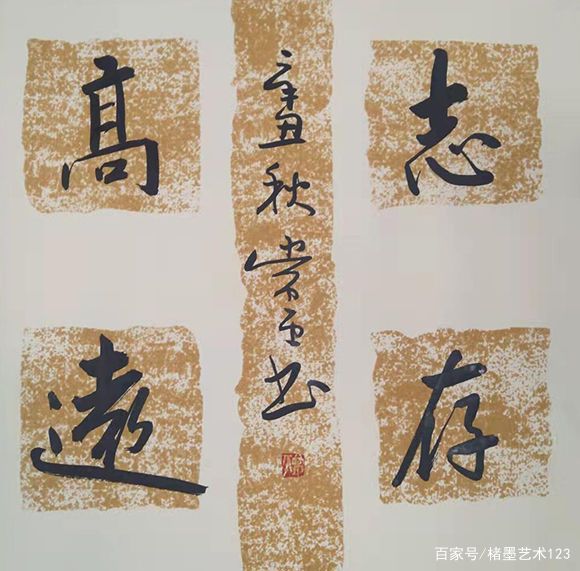 志存
高遠
辛丑秋 书
百家号/楮墨艺术123